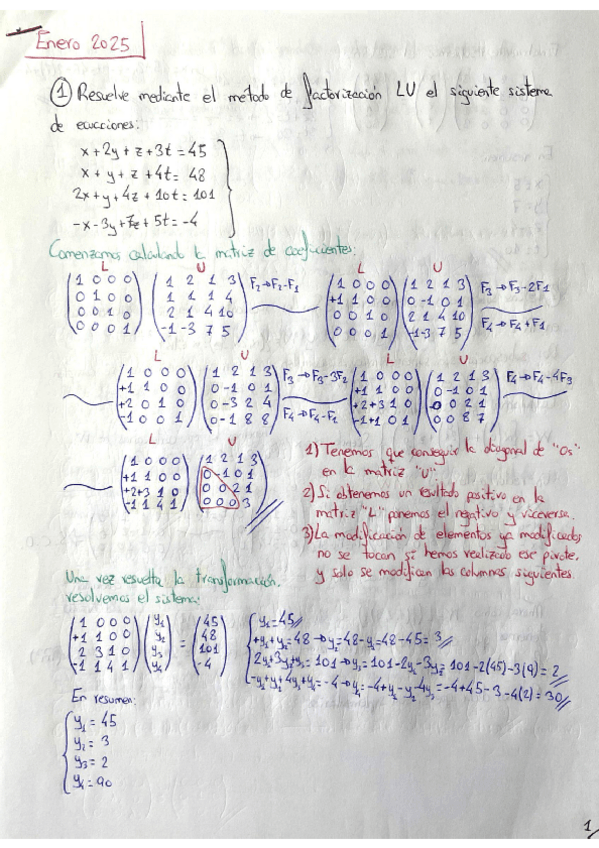 Enero 2025
① Resuelve mediante el método de factorización LU el siguiente sistema
de ecuaciones:
x+2y+z+3t=45
x+y+z+4t=48
2x+y+4z+10t=101
-x-3y+7z+5t=-4
Comenzamos calculando la matriz de coeficientes:
L U L U
(1 0 0 0) (1 2 1 3) F2→F2-F1 (1 0 0 0) (1 2 1 3) F3→F3-2F1
(0 1 0 0) (1 1 1 4) (+1 1 0 0) (0 -1 0 1)
(0 0 1 0) (2 1 4 10) (0 0 1 0) (2 1 4 10) F4→F4+F1
(0 0 0 1) (-1 -3 7 5) (0 0 0 1) (-1 -3 7 5)
L U L U
(1 0 0 0) (1 2 1 3) F3→F3-3F2 (1 0 0 0) (1 2 1 3) F4→F4-4F3
(+1 1 0 0) (0 -1 0 1) (+1 1 0 0) (0 -1 0 1)
(+2 0 1 0) (0 -3 2 4) F4→F4-F2 (+2 +3 1 0) (0 0 2 1)
(-1 0 0 1) (0 -1 8 8) (-1 +1 0 1) (0 0 8 7)
L U
(1 0 0 0) (1 2 1 3)
(+1 1 0 0) (0 -1 0 1)
(+2 +3 1 0) (0 0 2 1)
(-1 1 4 1) (0 0 0 3)
1) Tenemos que conseguir la diagonal de "0s"
en la matriz "U".
2) Si obtenemos un resultado positivo en la
matriz "L" ponemos el negativo y viceversa.
3) La modificación de elementos ya modificados
no se tocan si hemos realizado ese pivote,
y solo se modifican las columnas siguientes.
Una vez resuelta la transformación,
resolvemos el sistema:
(1 0 0 0) (y1) (45) y1=45
(+1 1 0 0) (y2) = (48) +y1+y2=48→y2=48-y1=48-45=3
(2 3 1 0) (y3) (101) 2y1+3y2+y3=101→y3=101-2y1-3y2=101-2(45)-3(9)=2
(-1 1 4 1) (y4) (-4) -y1+y2+4y3+y4=-4→y4=-4+y1-y2-4y3=-4+45-3-4(2)=30
En resumen:
y1=45
y2=3
y3=2
y4=90
1